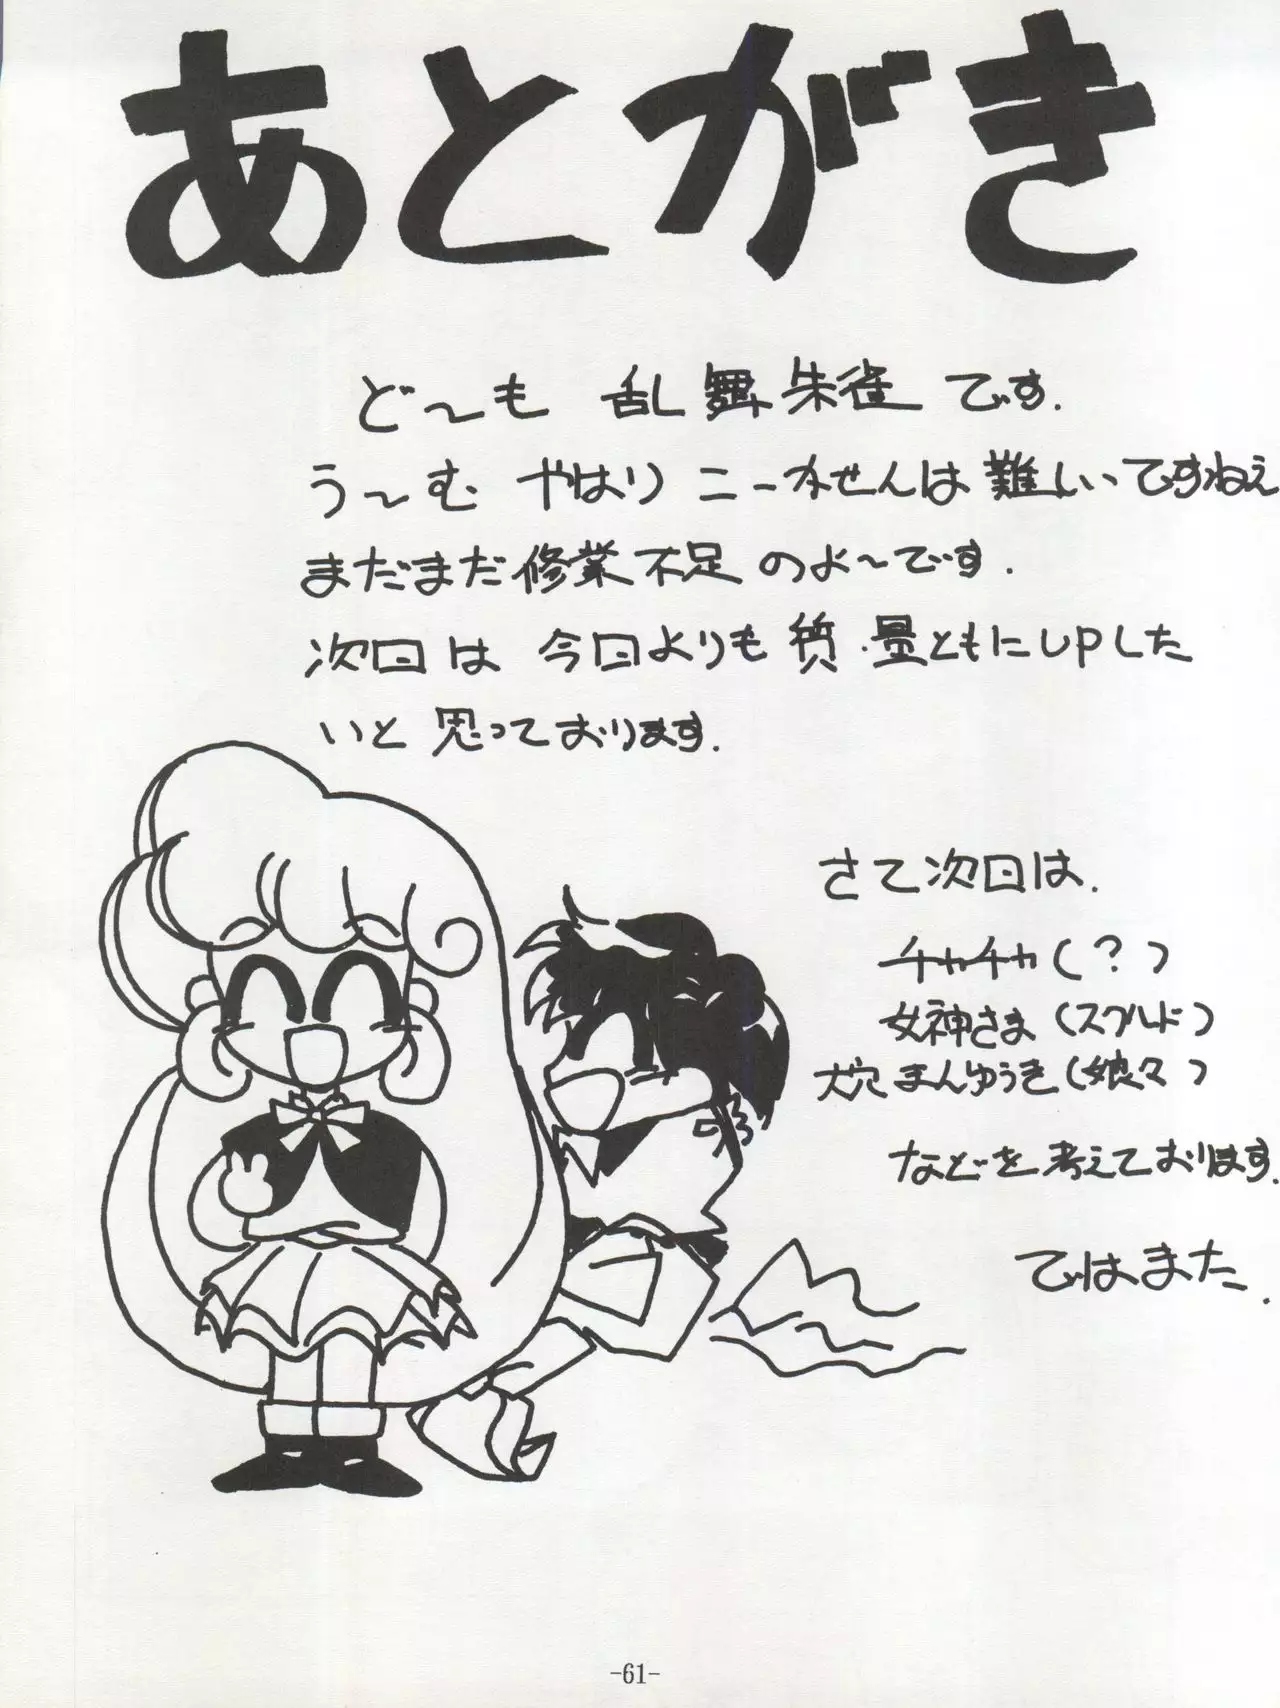 あとがき
ど〜も 乱舞朱雀 です.
う〜む やはり ニーかせんは 難しいですねえ
まだまだ修業不足のよ〜です.
次回は 今回よりも 質・量ともにUPした
いと 思っております.
さて次回は.
チャチャ(?)
女神さま(スクルド)
大穴 まんゆうき(娘々)
などを考えております.
ではまた.
-61-